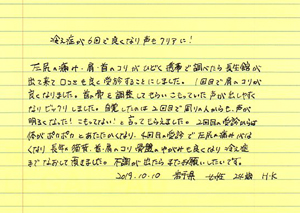 冷え症が6回で良くなり声もクリアに!
左尻の痛み・肩・首のコリがひどく携帯で調べたら長生館が
出て来て口コミも良く受診することにしました。1回目で肩のコリが
良くなりました。首の骨を調整してもらいこもっていた声が出しやすく
なりビックリしました。自覚したのは2回目で周りの人からも、声が
明るくなった!こもってない!と言ってもらえました。2回目の受診からは
体がポカポカとあたたかくなり、4回目の受診で左尻の痛みはな
くなり長年の猫背、首・肩のコリ骨盤のゆがみも良くなり冷え症
までなおして頂きました。不調が出たらまたお願いしたいです。
2019.10.10 岩手県 女性 24歳 H・K